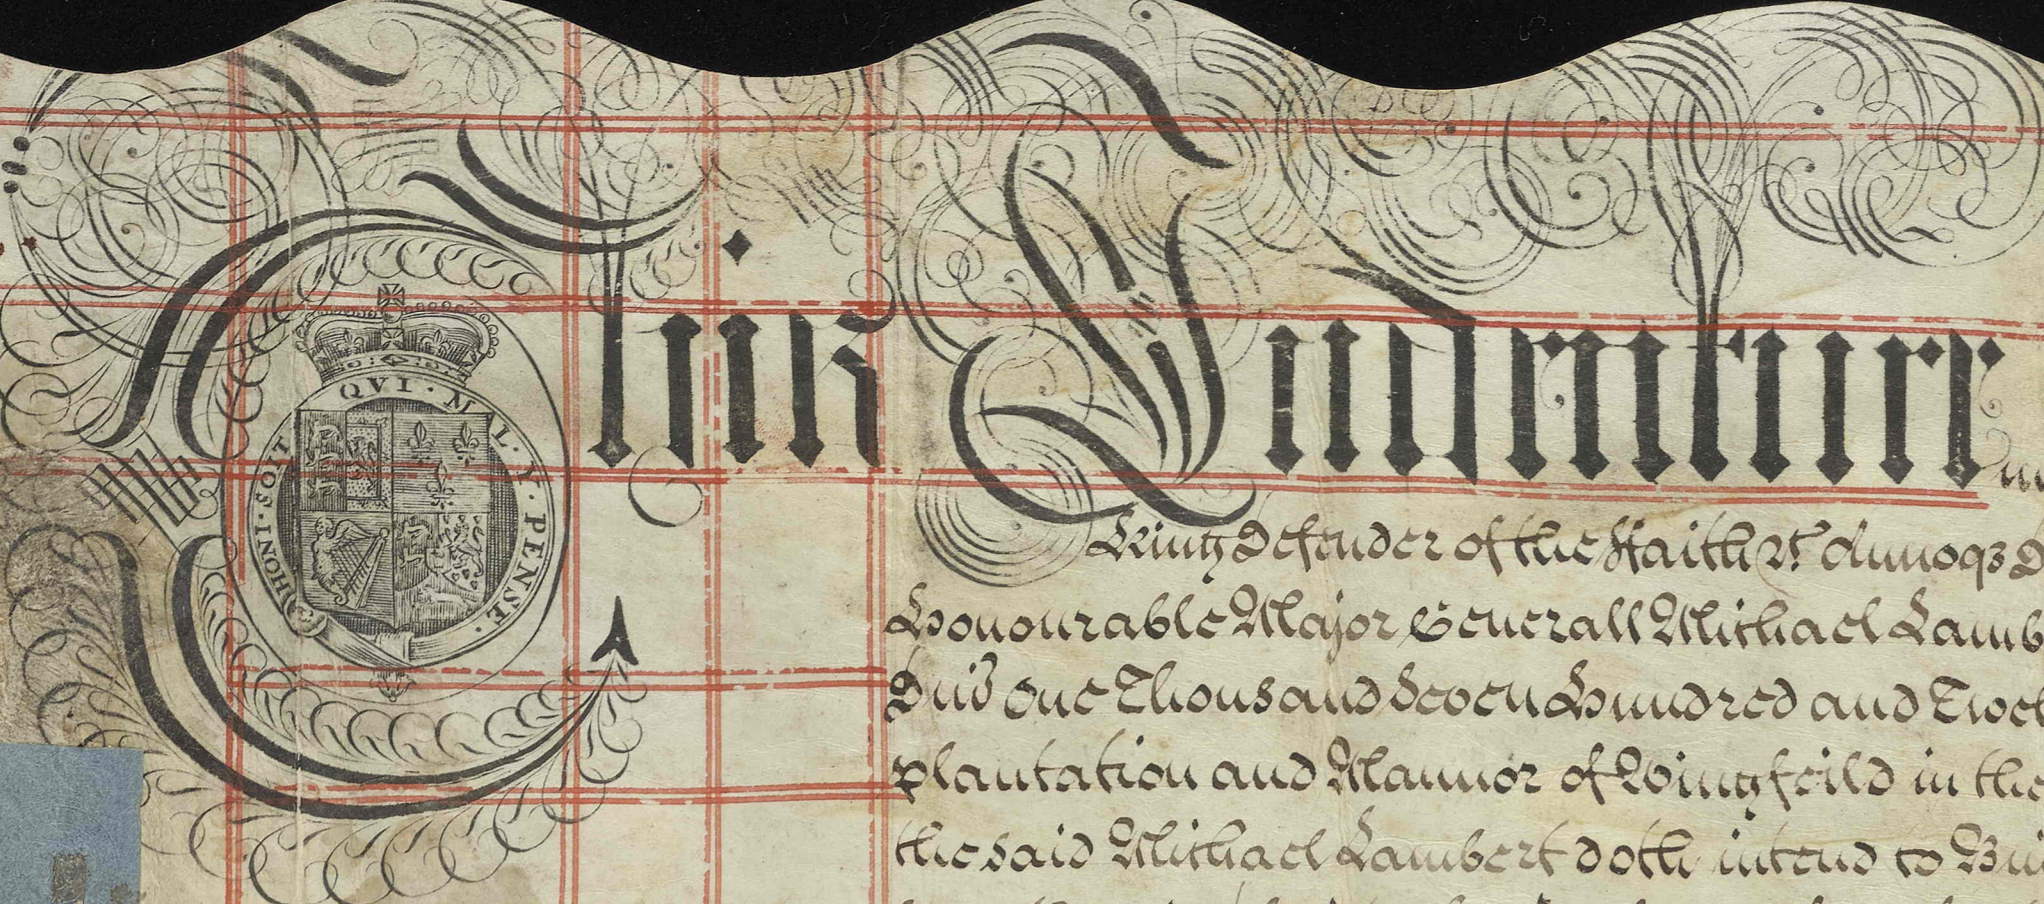 HONI · SOIT · QVI · MAL · Y · PENSE ·
This Indenture
King Defender of the ffaith &c annoq3 D
Honourable Major Generall Michael Lamb
Dni One Thousand Seven Hundred and Twel
plantation and Mannor of Wingfeild in the
the said Michael Lambert doth intend to Bui